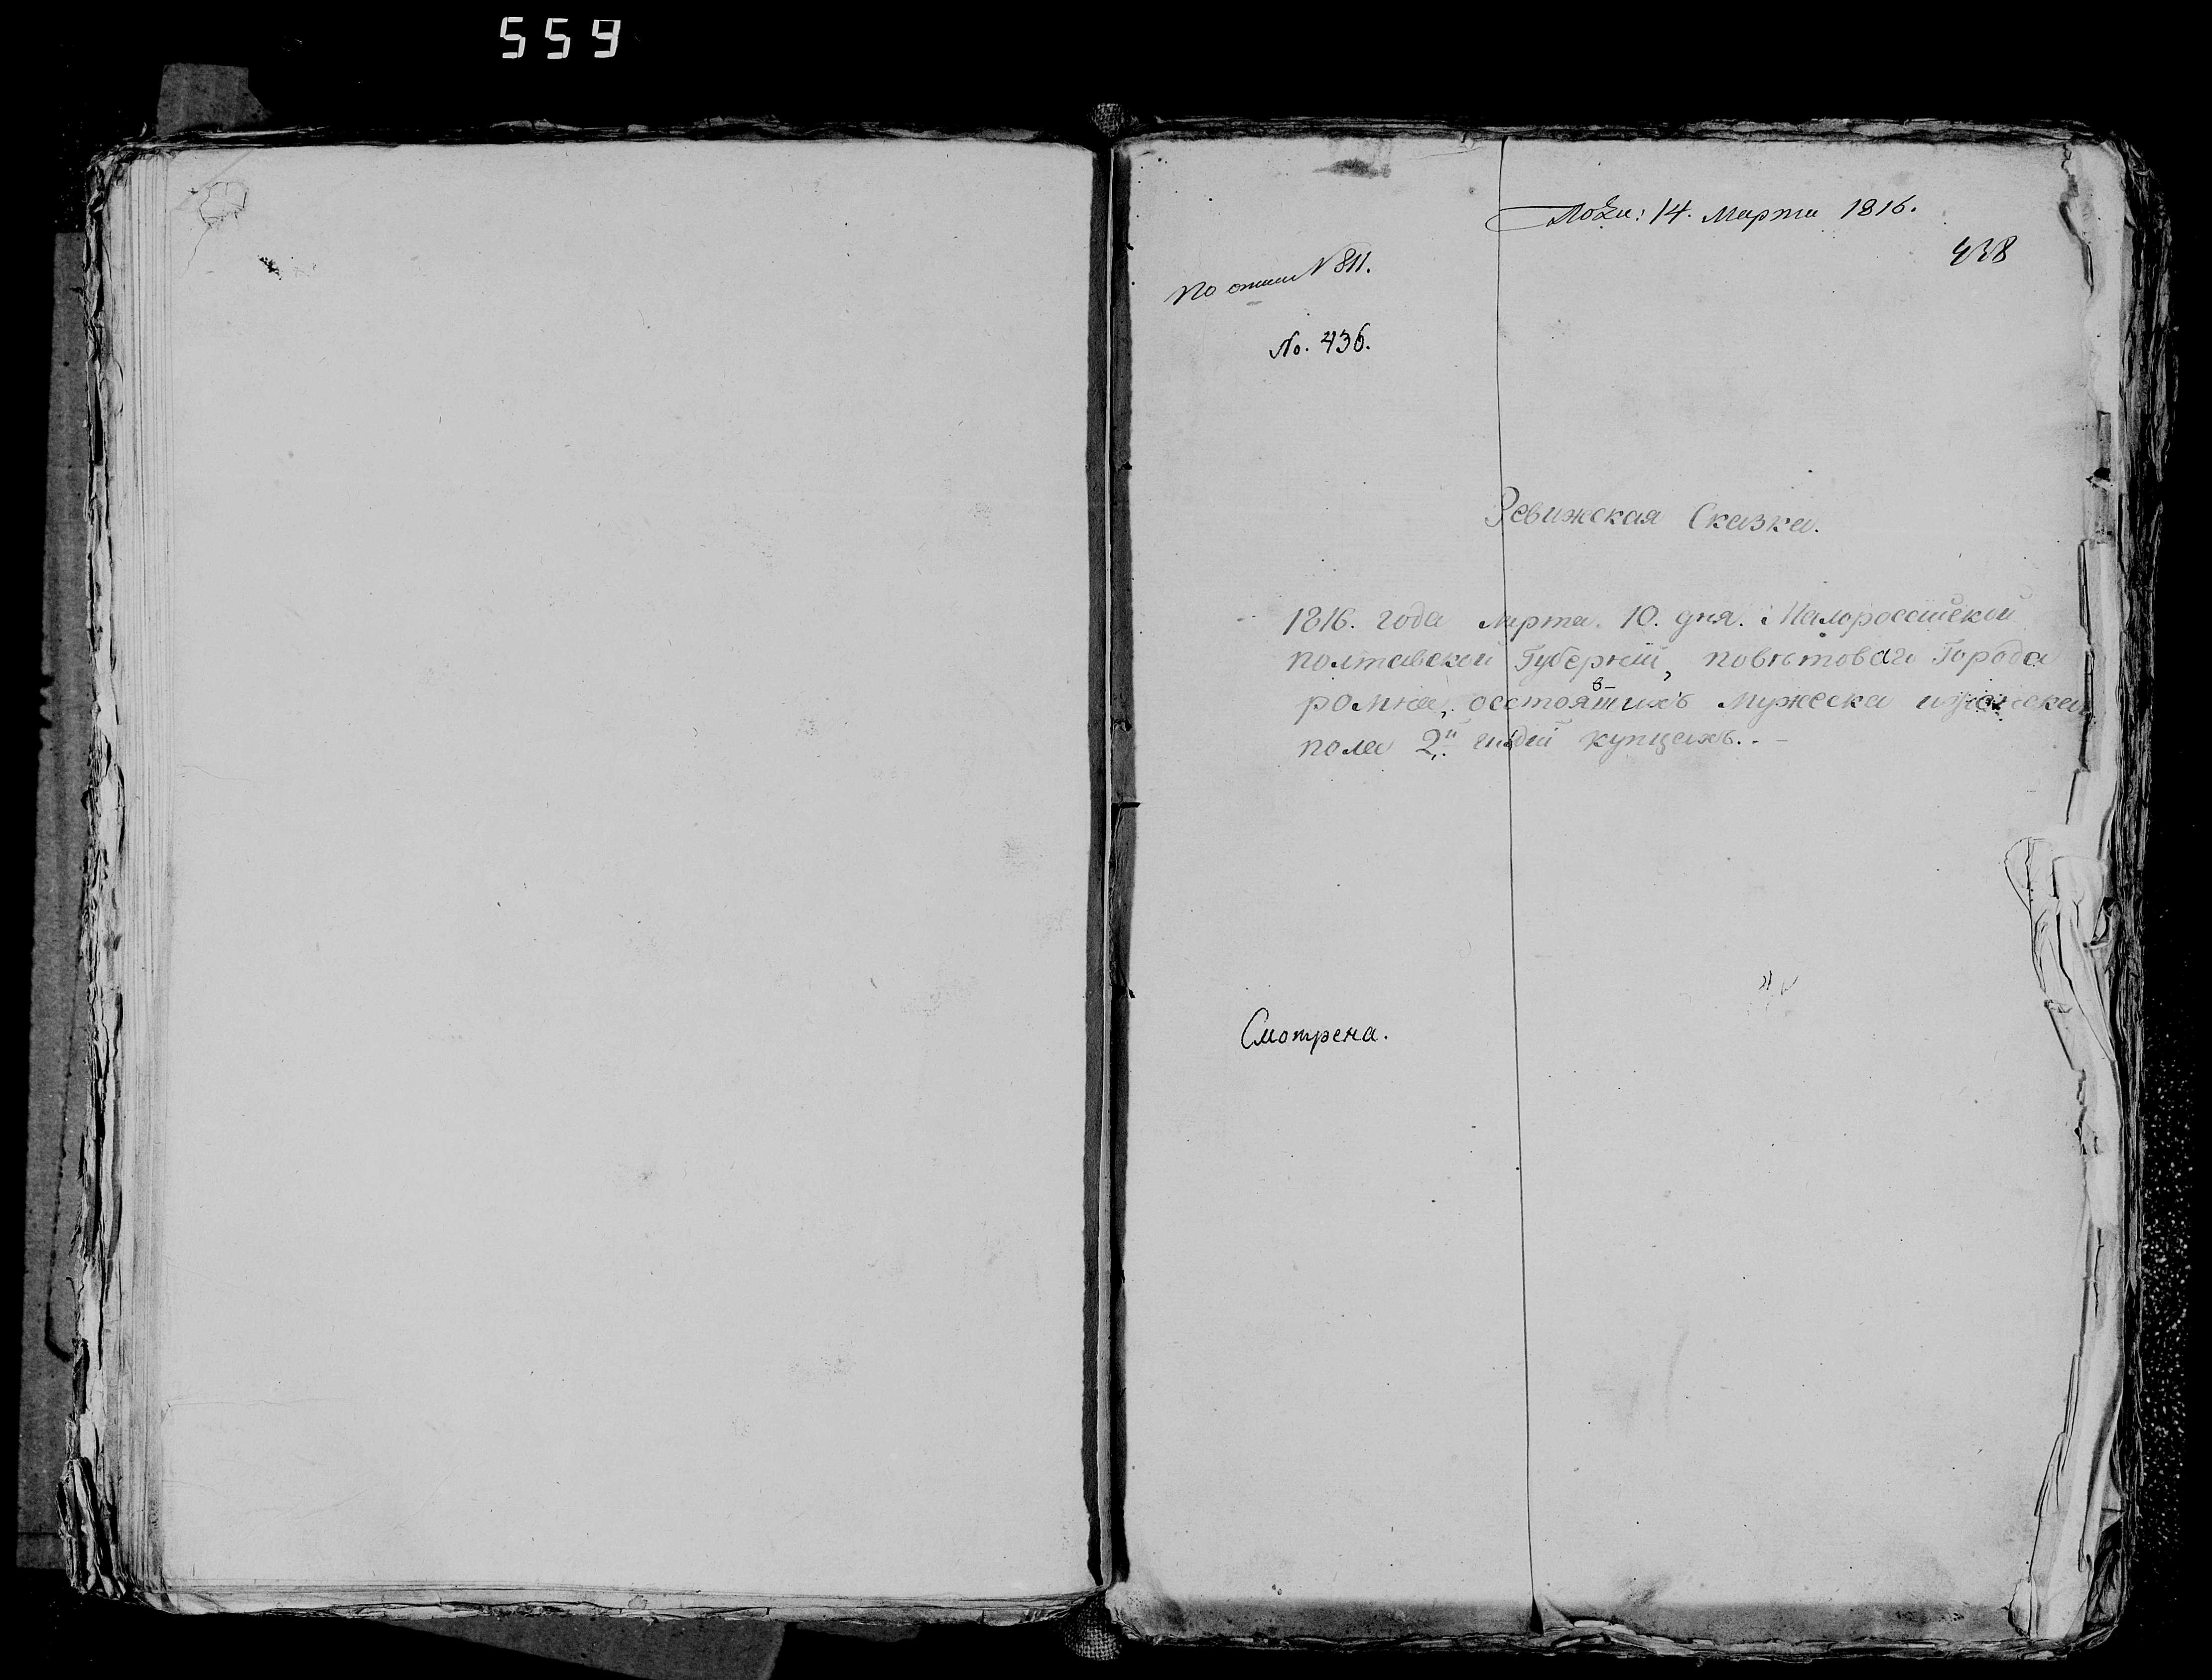 559
Пода: 14. Марта 1816.
438
По описи N 811.
No. 436.
Ревижская Сказка.
1816. года Марта. 10. дня. Малороссійской
полтавской Губерніи, повѣтоваго Города
ромна, осстоявшихъ Мужеска иженска
пола 2й. гилдіи купцахъ. . –
Смотрена.